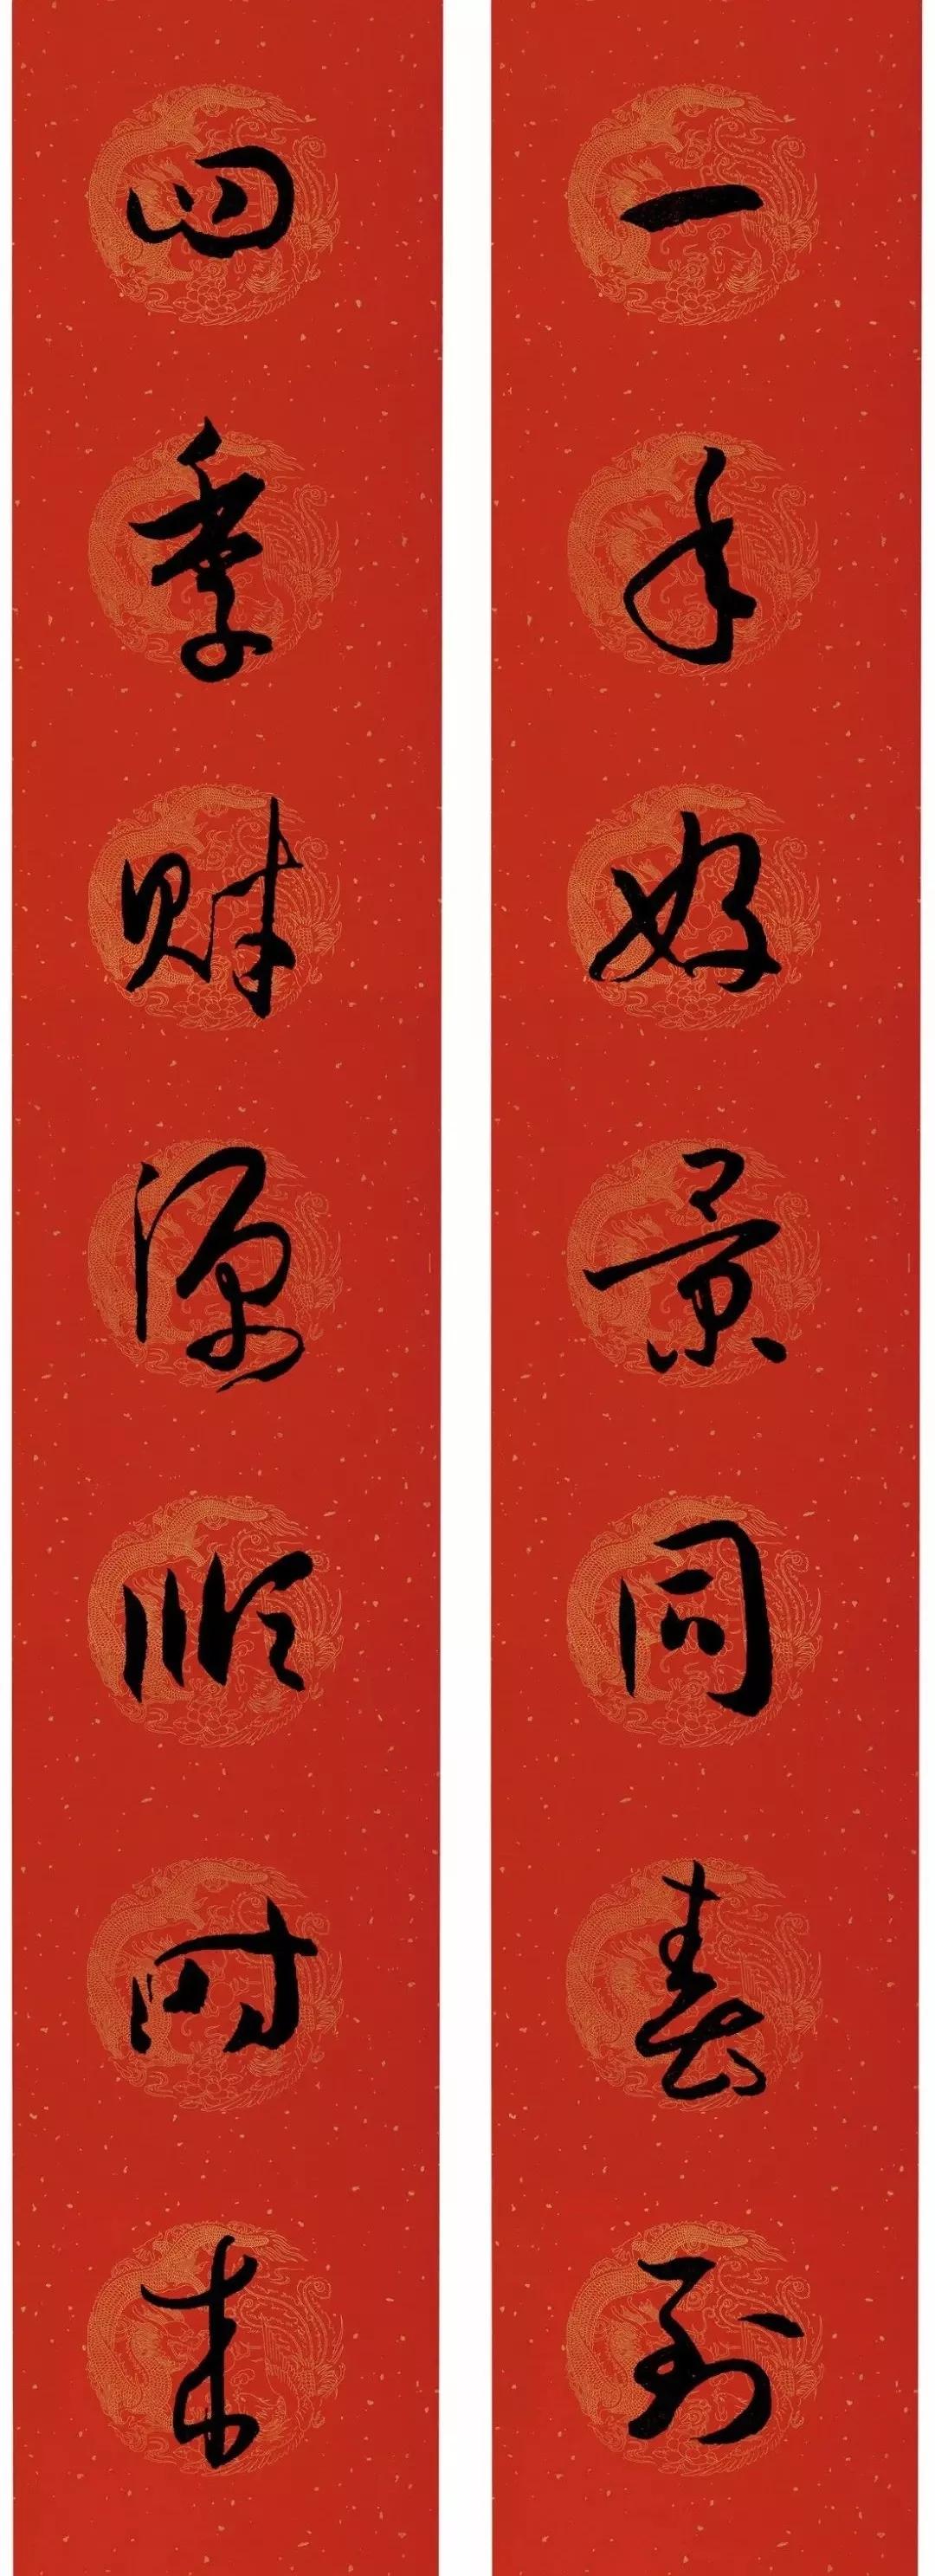 一年好景同春到
四季财源顺时来